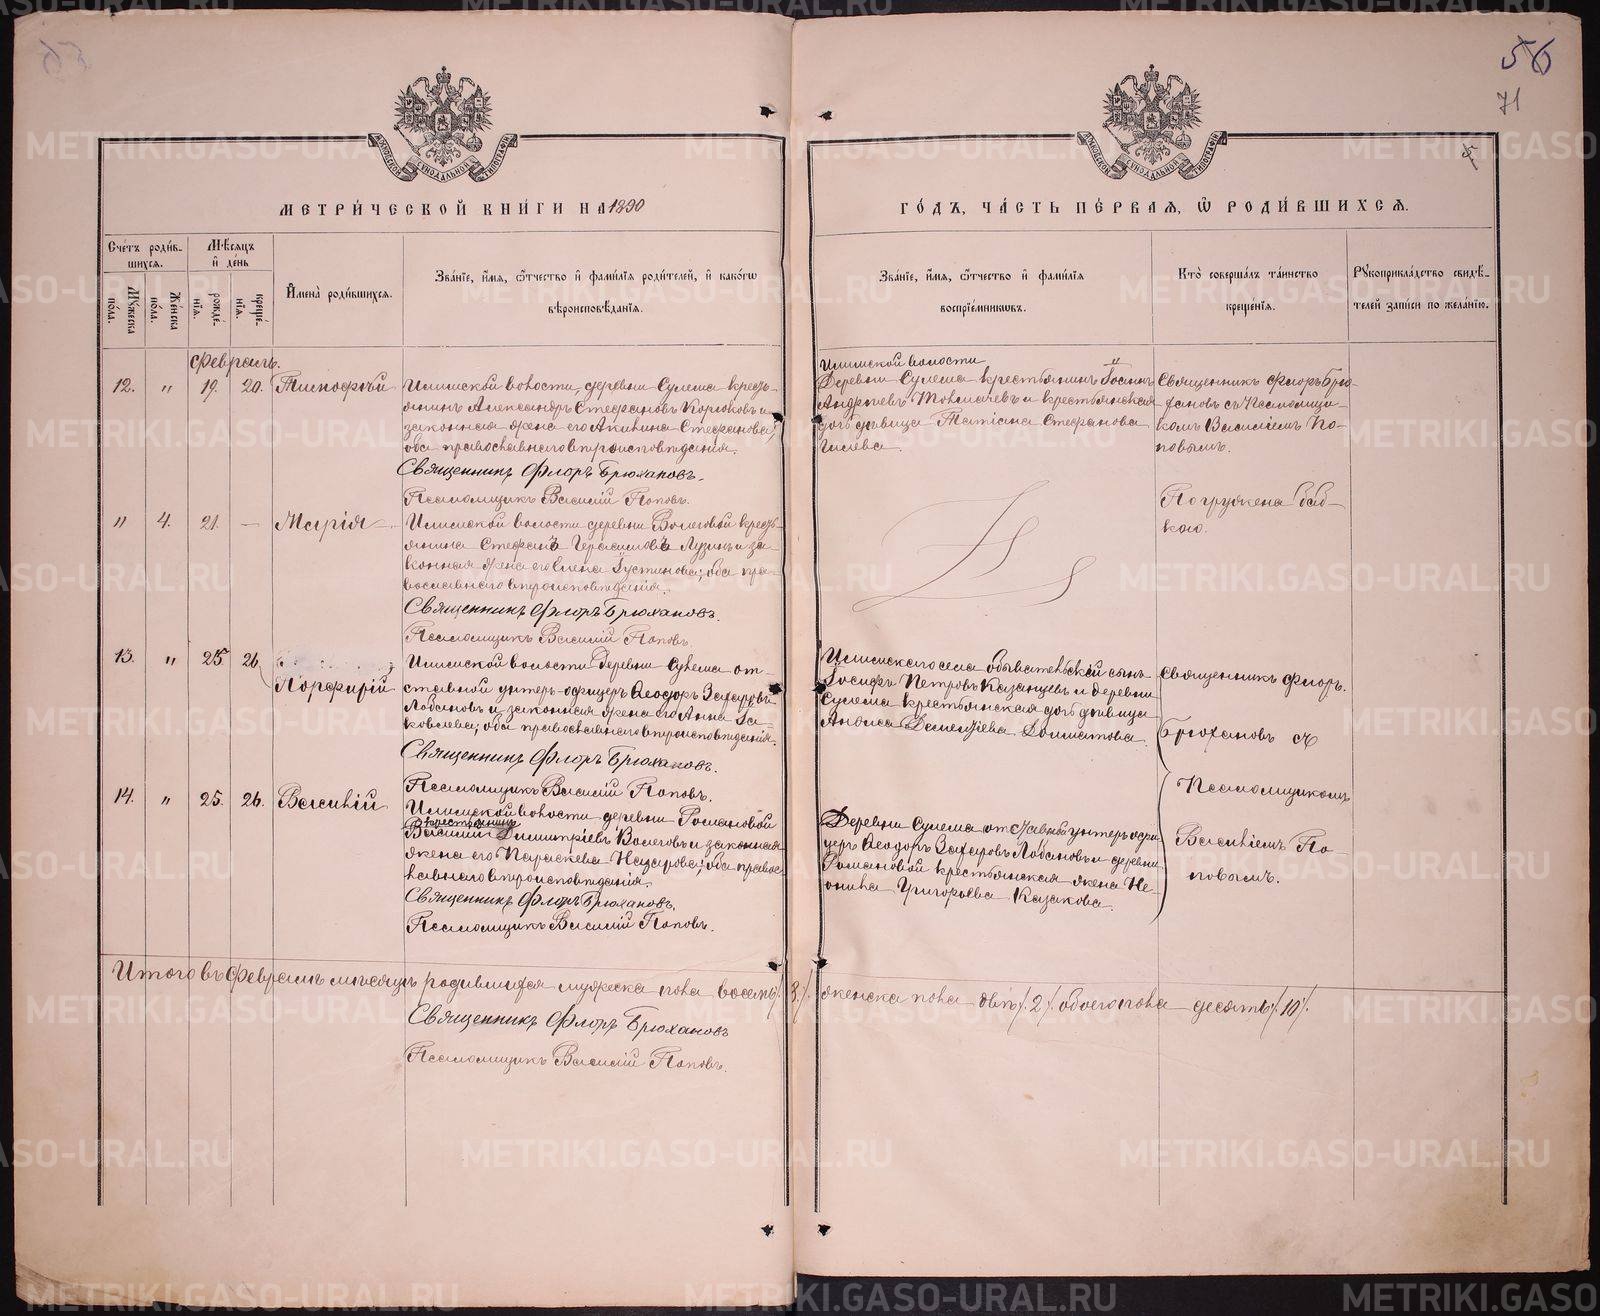 56
71
5
МОСКОВСКОЙ СѴНОДАЛЬНОЙ ТИПОГРАФІИ
МОСКОВСКОЙ СѴНОДАЛЬНОЙ ТИПОГРАФІИ
МЕТРИ́ЧЕСКОЙ КНИ́ГИ НА 1890
ГО́ДЪ, ЧА́СТЬ ПЕ́РВАЯ, Ѡ РОДИ́ВШИХСѦ.
Сче́тъ роди́в-
шихсѧ.
Мѣ́сѧцъ
и҆ де́нь
Мꙋжеска по́ла.
Же́нска по́ла.
рожде́-
нїѧ.
креще́-
нїѧ.
И҆мена̀ роди́вшихсѧ.
Зва́нїе, и҆́мѧ, ѻ҆́тчество и҆ фами́лїѧ роди́телей, и҆ како́гѡ
вѣроисповѣ́данїѧ.
Зва́нїе, и҆́мѧ, ѻ҆́тчество и҆ фами́лїѧ
воспрїе́мниковъ.
Кто̀ соверша́лъ та́инство
креще́нїѧ.
Рꙋкоприкла́дство свидѣ́-
телей за́писи по жела́нїю.
Февраль.
12. " 19. 20. Тимофѣй
Илимской волости деревни Сулема кресть-
янинъ Александръ Стефановъ Корюковъ и
законная жена его Акилина Стефанова;
оба православнаго вѣроисповѣданія.
Священникъ Флоръ Брюхановъ.
Псаломщикъ Василій Поповъ.
Илимской волости
Деревни Сулема крестьянинъ Іосифъ
Андреевъ Толмачевъ и крестьянская
дочь дѣвица Татіана Стефанова
Гилева.
Священникъ Флоръ Брю-
хановъ съ Псаломщи-
комъ Василіемъ По-
повымъ.
" 4. 21. — Марія
Илимской волости деревни Волеговой кресть-
янина Стефанъ Герасимовъ Лузинъ и за-
конная жена его Елена Іустинова; оба пра-
вославнаго вѣроисповѣданія.
Священникъ Флоръ Брюхановъ.
Псаломщикъ Василій Поповъ.
Погружена баб-
кою.
13. " 25 26. Порфирій
Илимской волости Деревни Сулема от-
ставной унтеръ-офицеръ Ѳеодоръ Захаровъ
Лобановъ и законная жена его Анна Іа-
ковлева; оба православнаго вѣроисповѣданія.
Священникъ Флоръ Брюхановъ.
Псаломщикъ Василій Поповъ.
Илимскаго села обывательскій сынъ
Іосифъ Петровъ Казанцевъ и деревни
Сулема крестьянская дочь дѣвица
Анѳиса Дементіева Долматова.
Священникъ Флоръ
Брюхановъ съ
Псаломщикомъ
Василіемъ По-
повымъ.
14. " 25. 26. Василій
Илимской волости деревни Романовой
крестьянинъ
Василій Димитріевъ Волеговъ и законная
жена его Параскева Назарова; оба право-
славнаго вѣроисповѣданія.
Священникъ Флоръ Брюхановъ.
Псаломщикъ Василій Поповъ.
Деревни Сулема отставной унтеръ офи-
церъ Ѳеодоръ Захаровъ Лобановъ и деревни
Романовой крестьянская жена Не-
онила Григорьева Казакова.
Итого въ февралѣ мѣсяцѣ родившихся мужеска пола восемь /. 8 /. женска пола двѣ /. 2 /. обоего пола десять /. 10 /.
Священникъ Флоръ Брюхановъ
Псаломщикъ Василій Поповъ.
METRIKI.GASO-URAL.RU